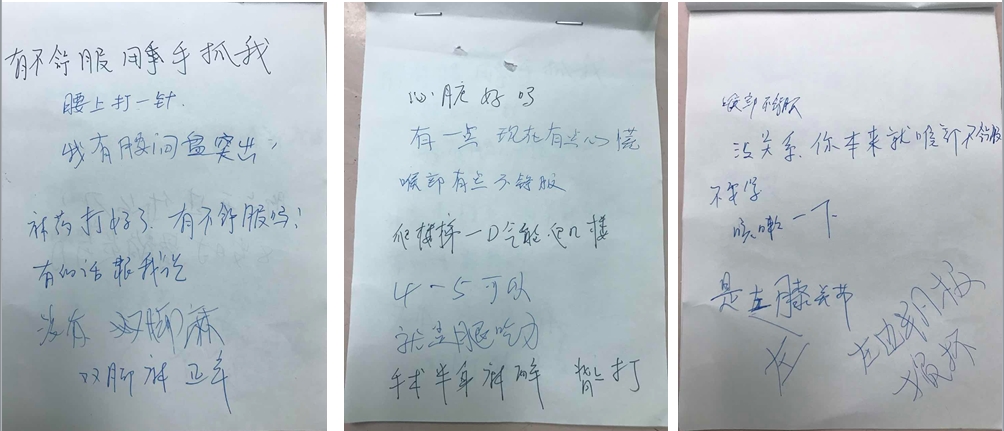 有不舒服用手抓我
腰上打一针.
我有股间盘突出
麻药打好了.有不舒服吗?
有的话跟我说
没有 双脚麻
双脚麻 正车
心脏好吗
有一点 现在有点心慌
喉部有点不舒服
爬楼梯一口气能爬几楼
4-5可以
就是腿吃力
手术半身麻醉 背上打
喉部不舒服
没关系.你本来就喉部不舒服
不要紧
咳嗽一下
是左膝关节
右
左边半月板
损坏